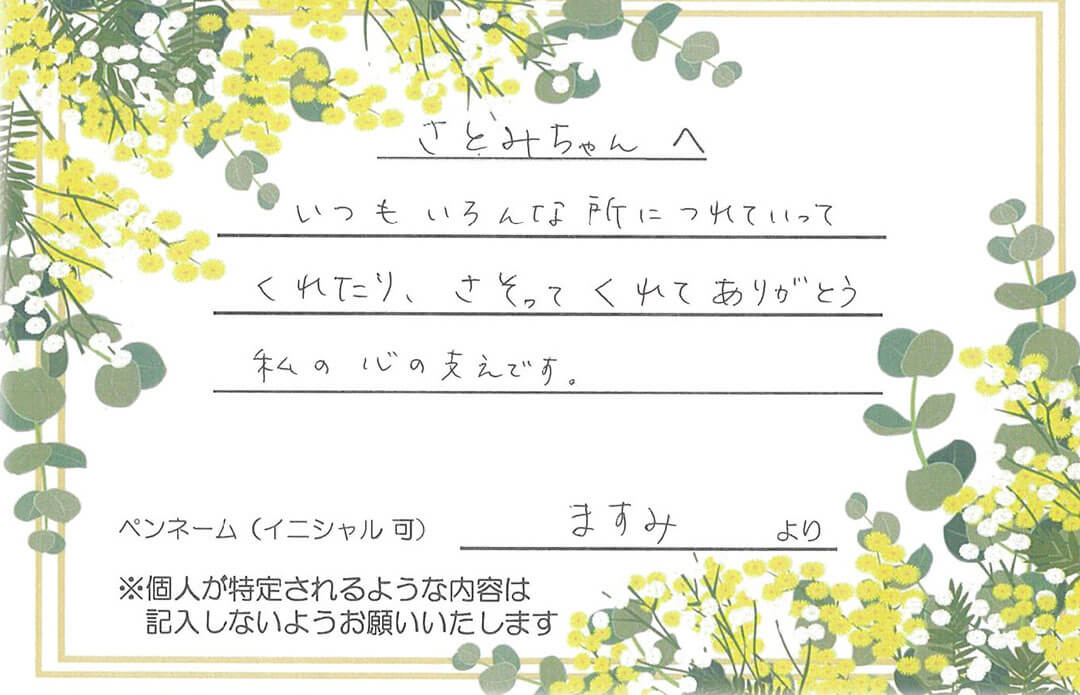 さとみちゃん へ
いつもいろんな所につれていって
くれたり、さそってくれてありがとう
私の心の支えです。
ペンネーム（イニシャル 可） ますみ より
※個人が特定されるような内容は
記入しないようお願いいたします